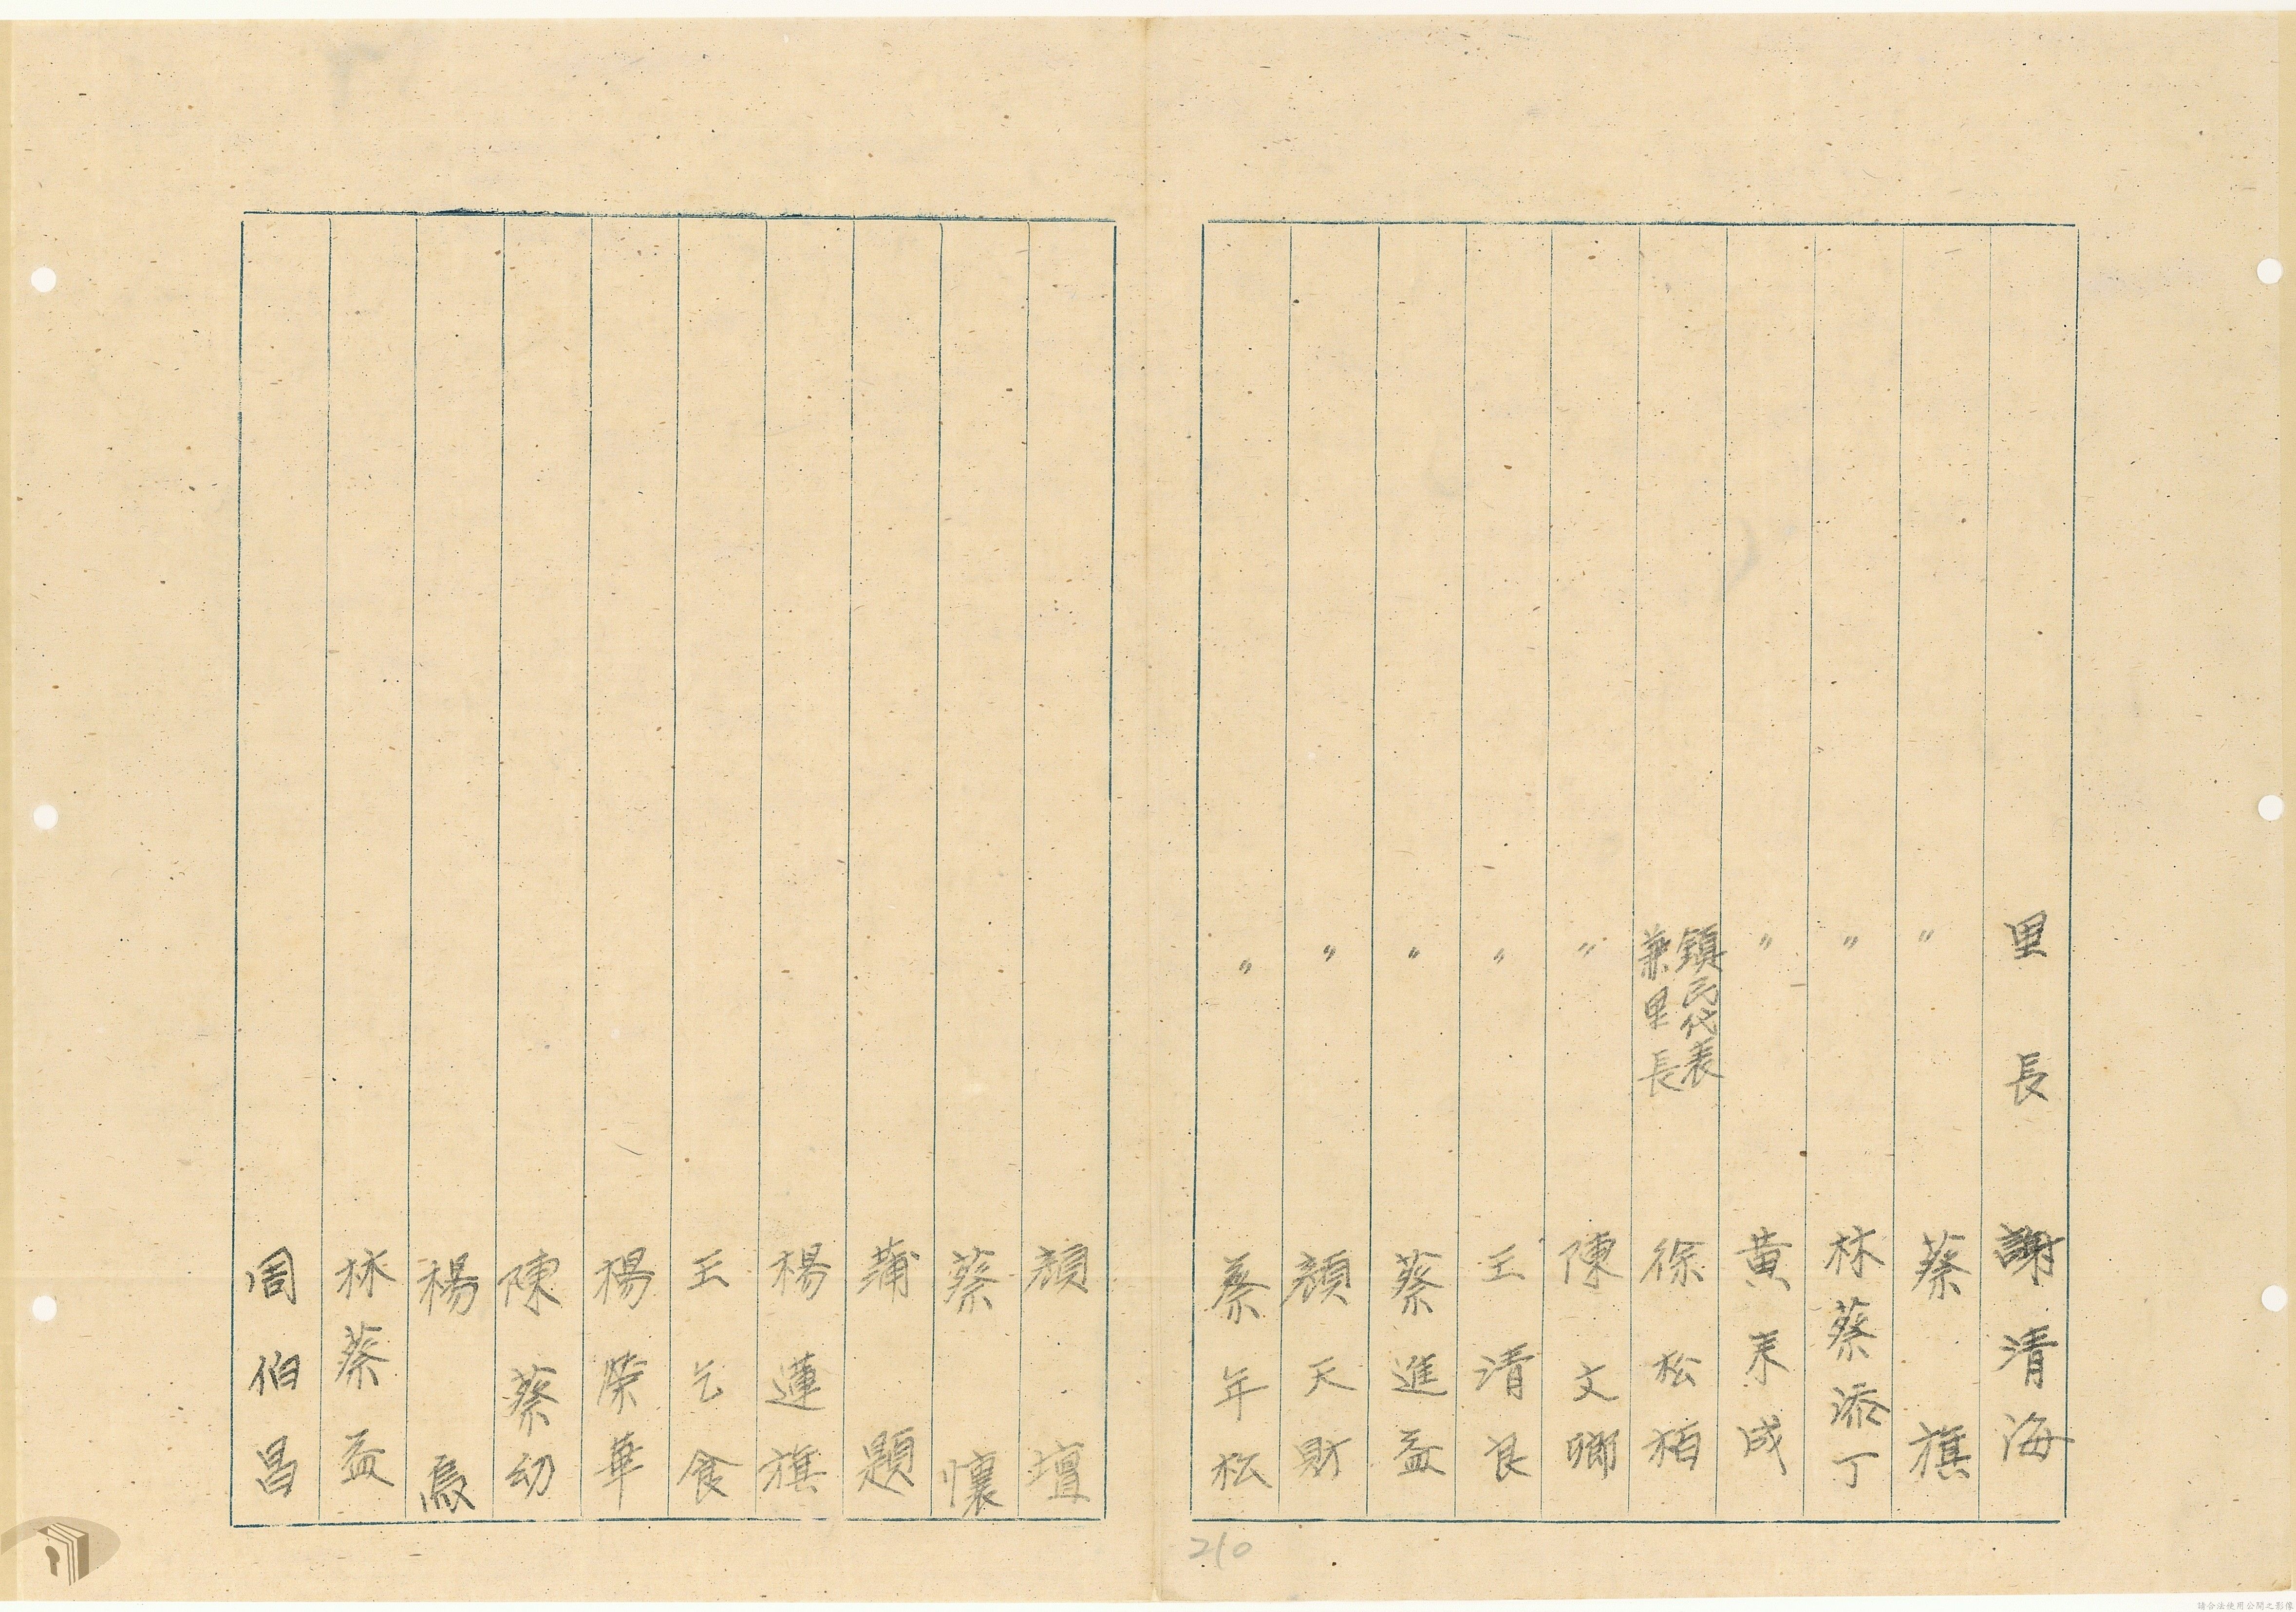 里長 謝清海
〃 蔡旗
〃 林蔡添丁
〃 黃来成
鎮民代表兼里長 徐松柏
〃 陳文卿
〃 王清良
〃 蔡進益
〃 顏天財
〃 蔡年松
顏壇
蔡懷
蒲題
楊蓮旗
王乞食
楊榮華
陳蔡幼
楊
林蔡益
周伯昌
210
請合法使用公開之影像